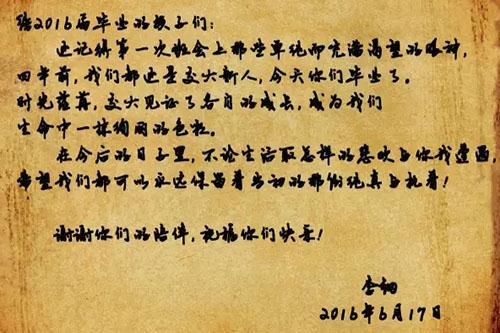 给2016届毕业的孩子们：
还记得第一次班会上那些单纯而充满渴望的眼神，
四年前，我们都还是交大新人，今天你们毕业了。
时光荏苒，交大见证了各自的成长，成为我们
生命中一抹绚丽的色彩。
在今后的日子里，不论生活取怎样的意欢与你我遭遇，
希望我们都可以永远保留着当初的那份纯真与执着！
谢谢你们的陪伴，祝福你们快乐！
李
2016年6月17日